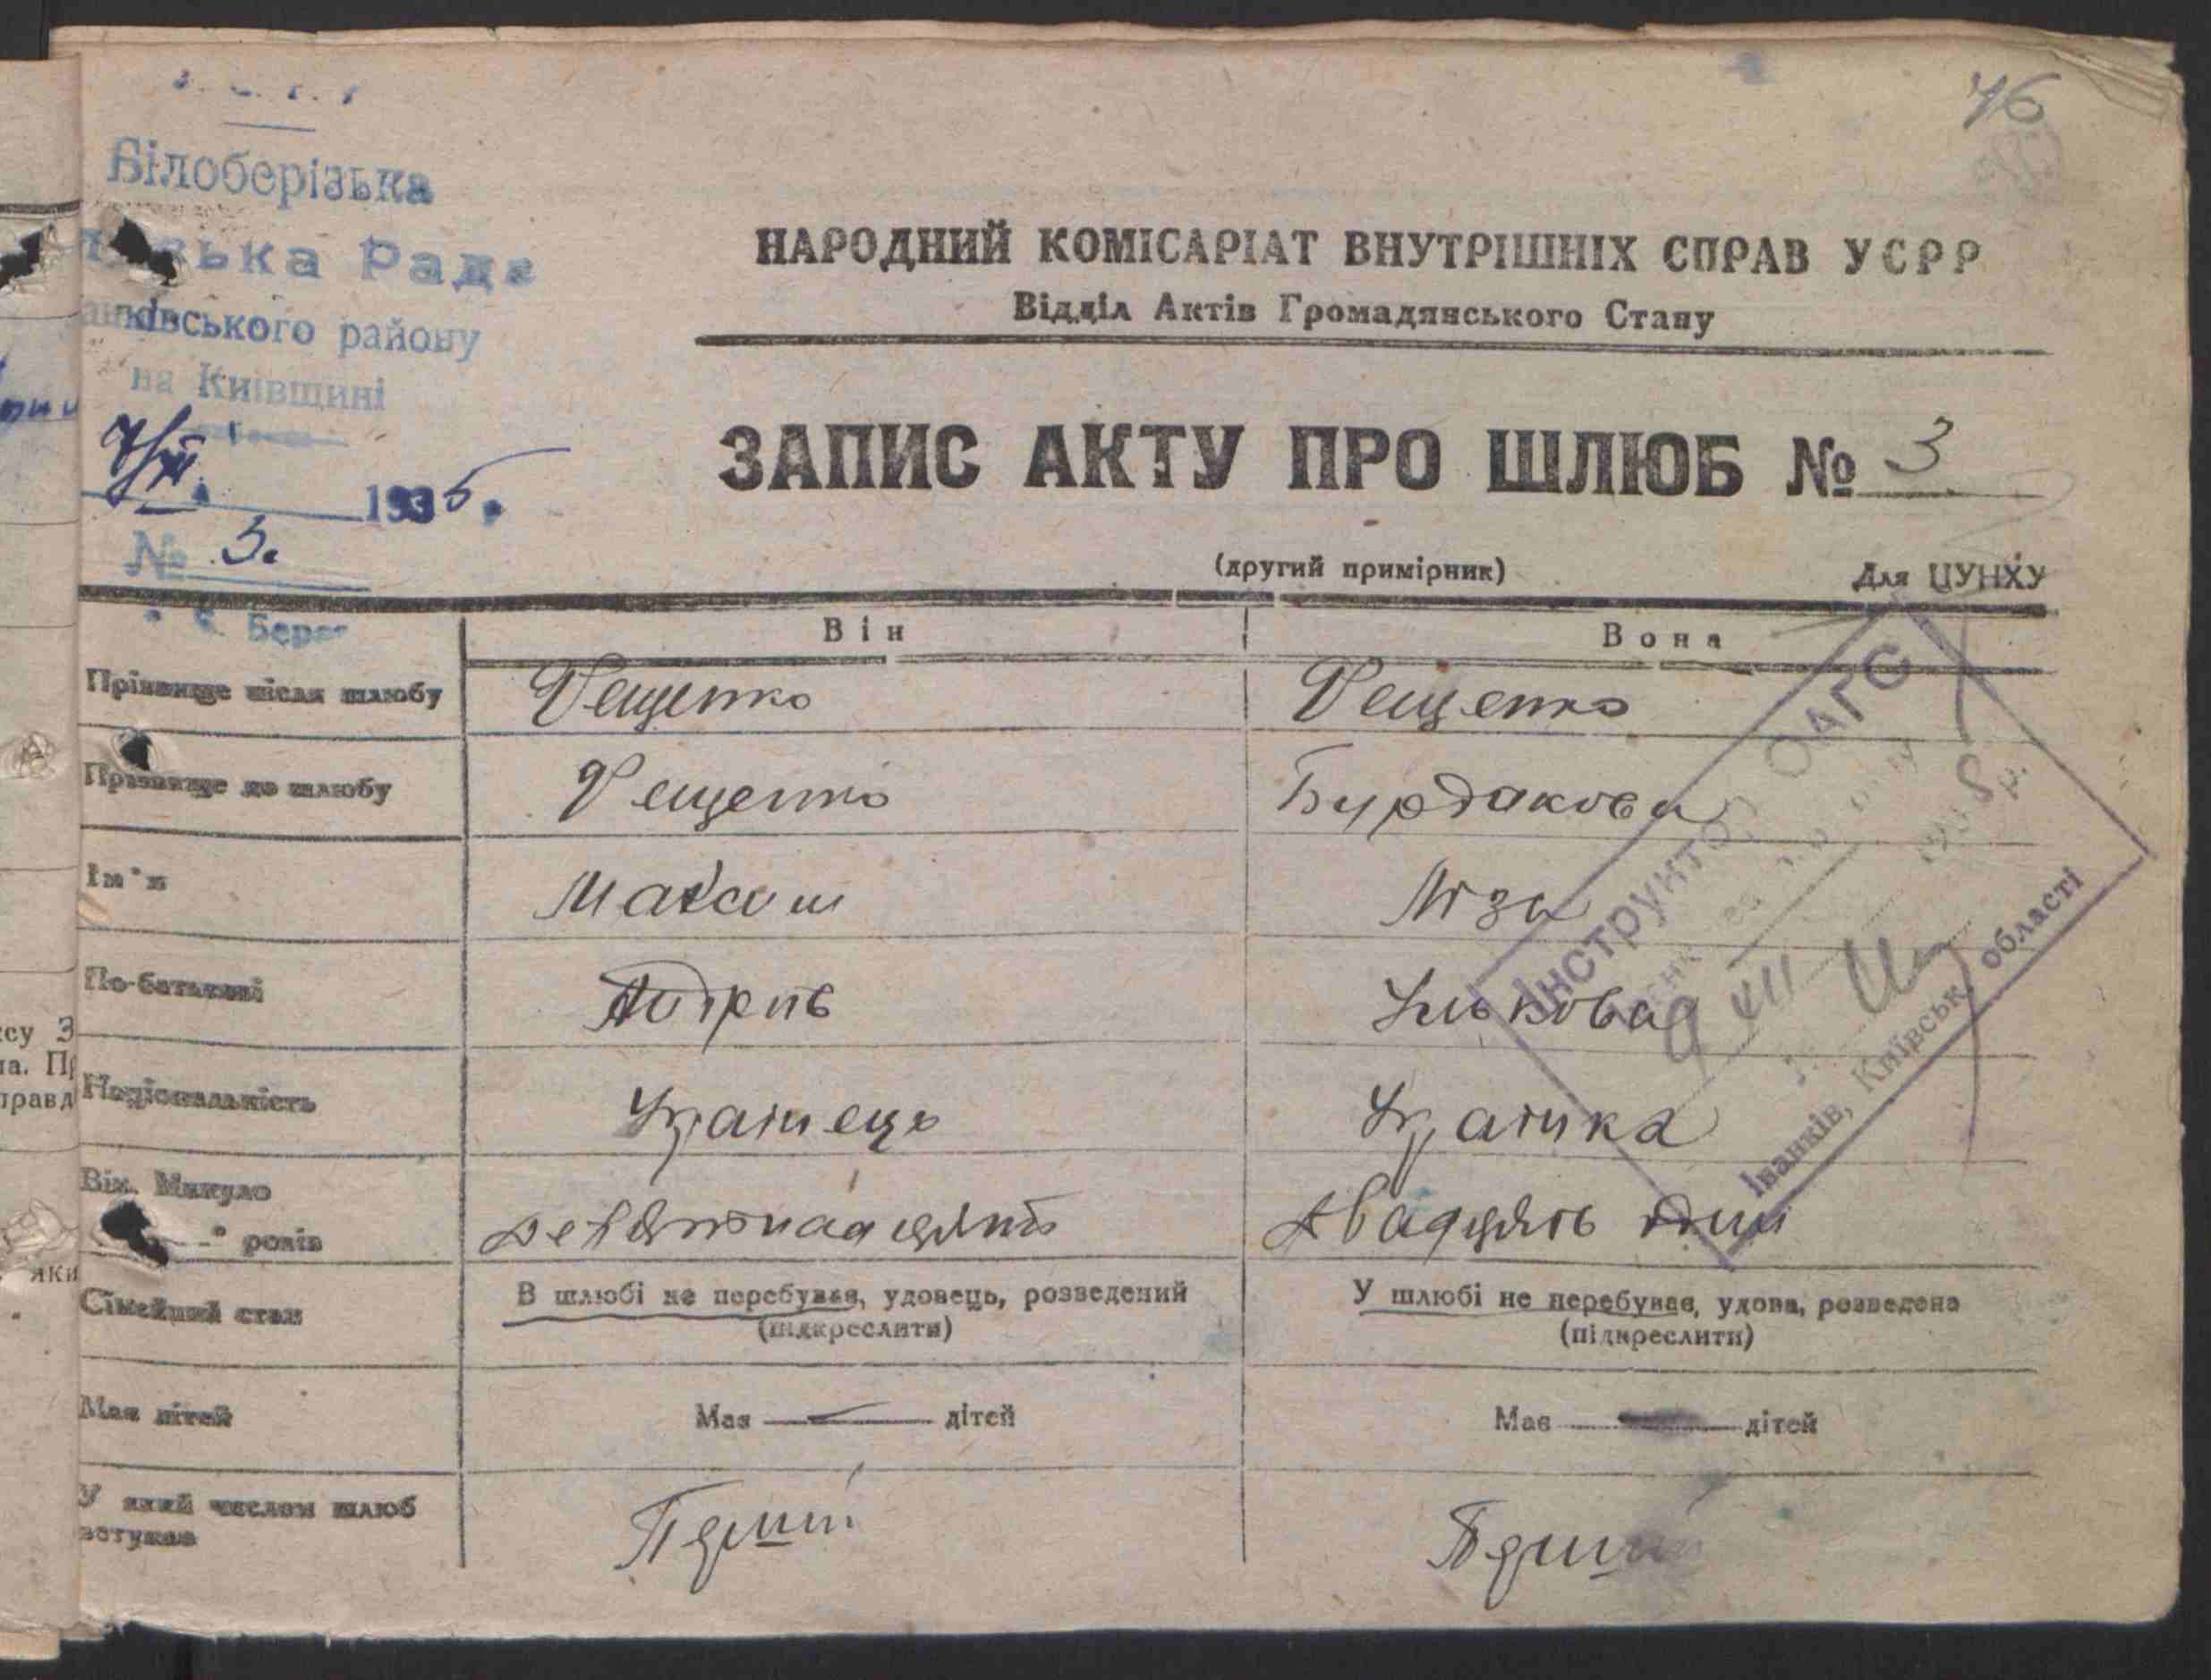 76
Білоберізька
Рада
району
на Київщині
1935.
№ 3.
НАРОДНИЙ КОМІСАРІАТ ВНУТРІШНІХ СПРАВ УСРР
Відділ Актів Громадянського Стану
ЗАПИС АКТУ ПРО ШЛЮБ № 3
(другий примірник) Для ЦУНХУ
Він Вона
Прізвище після шлюбу Фещенко Фещенко
Прізвище до шлюбу Фещенко Бурдакова
Ім'я Максим Ліза
По-батькові
Національність
Вік. Минуло
років девятнадцять двадцять
Сімейний стан В шлюбі не перебував, удовець, розведений У шлюбі не перебував, удова, розведена
(підкреслити) (підкреслити)
Має дітей Має дітей Має дітей
У який числом шлюб
вступає
Інструктор ОАГС
Іванків, Київськ. області